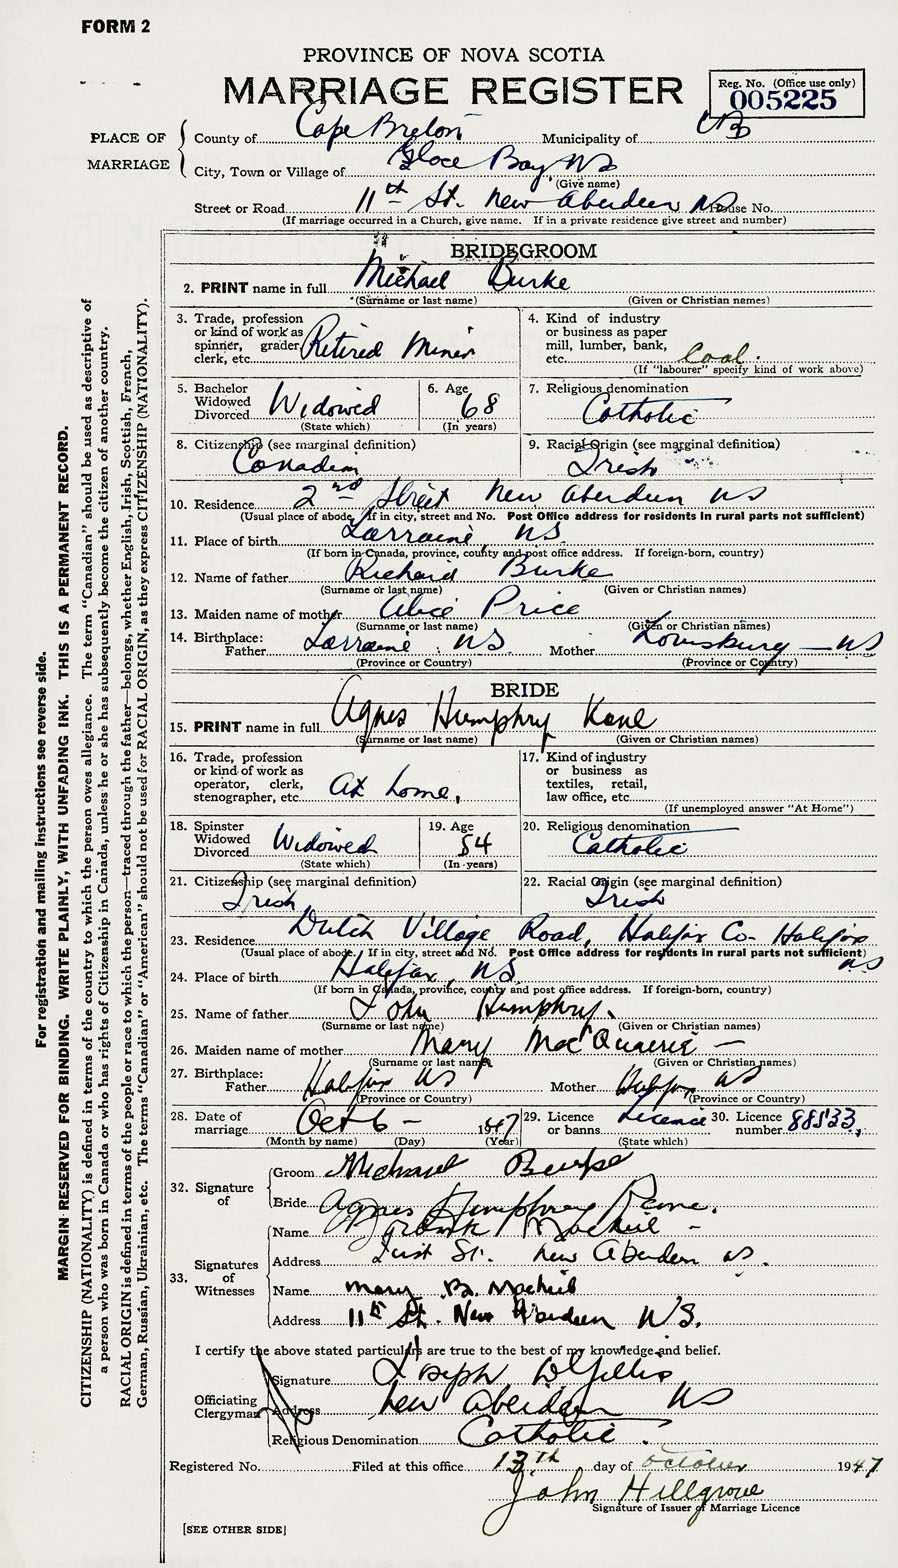 FORM 2
PROVINCE OF NOVA SCOTIA
MARRIAGE REGISTER
Reg. No. (Office use only)
005225
PLACE OF MARRIAGE
County of Cape Breton Municipality of CB
City, Town or Village of Glace Bay NS
(Give name)
Street or Road 11th St. New Aberdeen NS House No.
(If marriage occurred in a Church, give name. If in a private residence give street and number)
BRIDEGROOM
2. PRINT name in full Michael Burke
(Surname or last name) (Given or Christian names)
3. Trade, profession or kind of work as spinner, grader, clerk, etc. Retired Miner
4. Kind of industry or business as paper mill, lumber, bank, etc. Coal.
(If "labourer" specify kind of work above)
5. Bachelor Widowed Divorced Widowed
(State which)
6. Age 68
(In years)
7. Religious denomination Catholic
8. Citizenship (see marginal definition) Canadian
9. Racial Origin (see marginal definition) Irish
10. Residence 2nd Street New Aberdeen NS
(Usual place of abode. If in city, street and No. Post Office address for residents in rural parts not sufficient)
11. Place of birth Lorraine, NS.
(If born in Canada, province, county and post office address. If foreign-born, country)
12. Name of father Richard Burke
(Surname or last name) (Given or Christian names)
13. Maiden name of mother Alice Price
(Surname or last name) (Given or Christian names)
14. Birthplace: Father Lorraine NS. Mother Louisburg — NS
(Province or Country) (Province or Country)
BRIDE
15. PRINT name in full Agnes Humphry Kane
(Surname or last name) (Given or Christian names)
16. Trade, profession or kind of work as operator, clerk, stenographer, etc. At home,
17. Kind of industry or business as textiles, retail, law office, etc.
(If unemployed answer "At Home")
18. Spinster Widowed Divorced Widowed
(State which)
19. Age 54
(In years)
20. Religious denomination Catholic
21. Citizenship (see marginal definition) Irish
22. Racial Origin (see marginal definition) Irish
23. Residence Dutch Village Road, Halifax Co. Halifax NS
(Usual place of abode. If in city, street and No. Post Office address for residents in rural parts not sufficient)
24. Place of birth Halifax, NS.
(If born in Canada, province, county and post office address. If foreign-born, country)
25. Name of father John Humphry.
(Surname or last name) (Given or Christian names)
26. Maiden name of mother Mary MacQuarrie —
(Surname or last name) (Given or Christian names)
27. Birthplace: Father Halifax NS Mother Halifax NS
(Province or Country) (Province or Country)
28. Date of marriage Oct 6 - 1947
(Month by name) (Day) (Year)
29. Licence or banns Licence
(State which)
30. Licence number 88533,
32. Signature of
Groom Michael Burke
Bride Agnes Humphrey Kane.
33. Signatures of Witnesses
Name Frank MacNeil -
Address First St. New Aberdeen NS.
Name Mary B. MacNeil
Address 11th St. New Aberdeen N.S.
I certify the above stated particulars are true to the best of my knowledge and belief.
Officiating Clergyman
Signature Joseph D Gillis
Address New Aberdeen NS
Religious Denomination Catholic.
Registered No. Filed at this office 13th day of October 1947
John Hillgrove
Signature of Issuer of Marriage Licence
[SEE OTHER SIDE]
For registration and mailing instructions see reverse side.
MARGIN RESERVED FOR BINDING. WRITE PLAINLY, WITH UNFADING INK. THIS IS A PERMANENT RECORD.
CITIZENSHIP (NATIONALITY) is defined in terms of the country to which the person owes allegiance. The term "Canadian" should be used as descriptive of
a person who was born in Canada or who has rights of Citizenship in Canada, unless he or she has subsequently become the citizen of another country.
RACIAL ORIGIN is defined in terms of the people or race to which the person—traced through the father—belongs, whether English, Irish, Scottish, French,
German, Russian, Ukrainian, etc. The terms "Canadian" or "American" should not be used for RACIAL ORIGIN, as they express CITIZENSHIP (NATIONALITY).